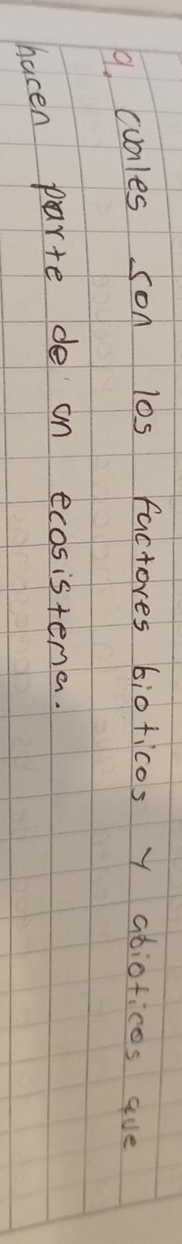 9. cuales son los factores bioticos y abioticos que
hacen parte de un ecosistema.